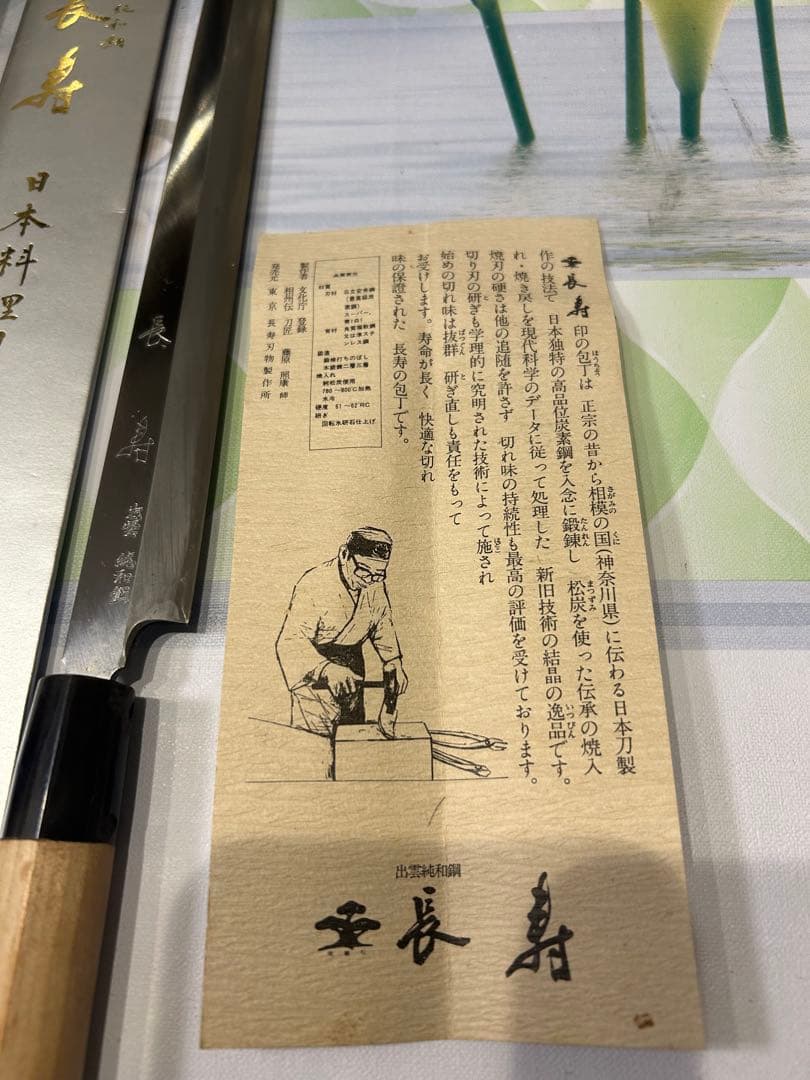 長寿
日本料理
長
寿
出雲
純和鋼
長寿 印の包丁は 正宗の昔から相模の国(神奈川県)に伝わる日本刀製
作の技法で 日本独特の高品位炭素鋼を入念に鍛錬し 松炭を使った伝承の焼入
れ・焼き戻しを現代科学のデータに従って処理した 新旧技術の結晶の逸品です。
焼刃の硬さは他の追随を許さず 切れ味の持続性も最高の評価を受けております。
切り刃の研ぎも学理的に究明された技術によって施され
始めの切れ味は抜群 研ぎ直しも責任をもって
お受けします。寿命が長く 快適な切れ
味の保證された 長寿の包丁です。
品質表示
材質
刃材 日立安来鋼
(最高級炭
素鋼)
スーパー、
青(白)
背材 角質極軟鋼
又は準ステ
ンレス鋼
鍛造
鍛接打ちのばし
本鍛錬二層三層
焼入れ
純松炭使用
780〜800℃加熱
水冷
硬度 61〜62°RC
研ぎ
回転水研石仕上げ
製作者 文化庁 登録
相州伝 刀匠 藤原 照康 師
発売元 東京 長寿刃物製作所
出雲純和鋼
長寿